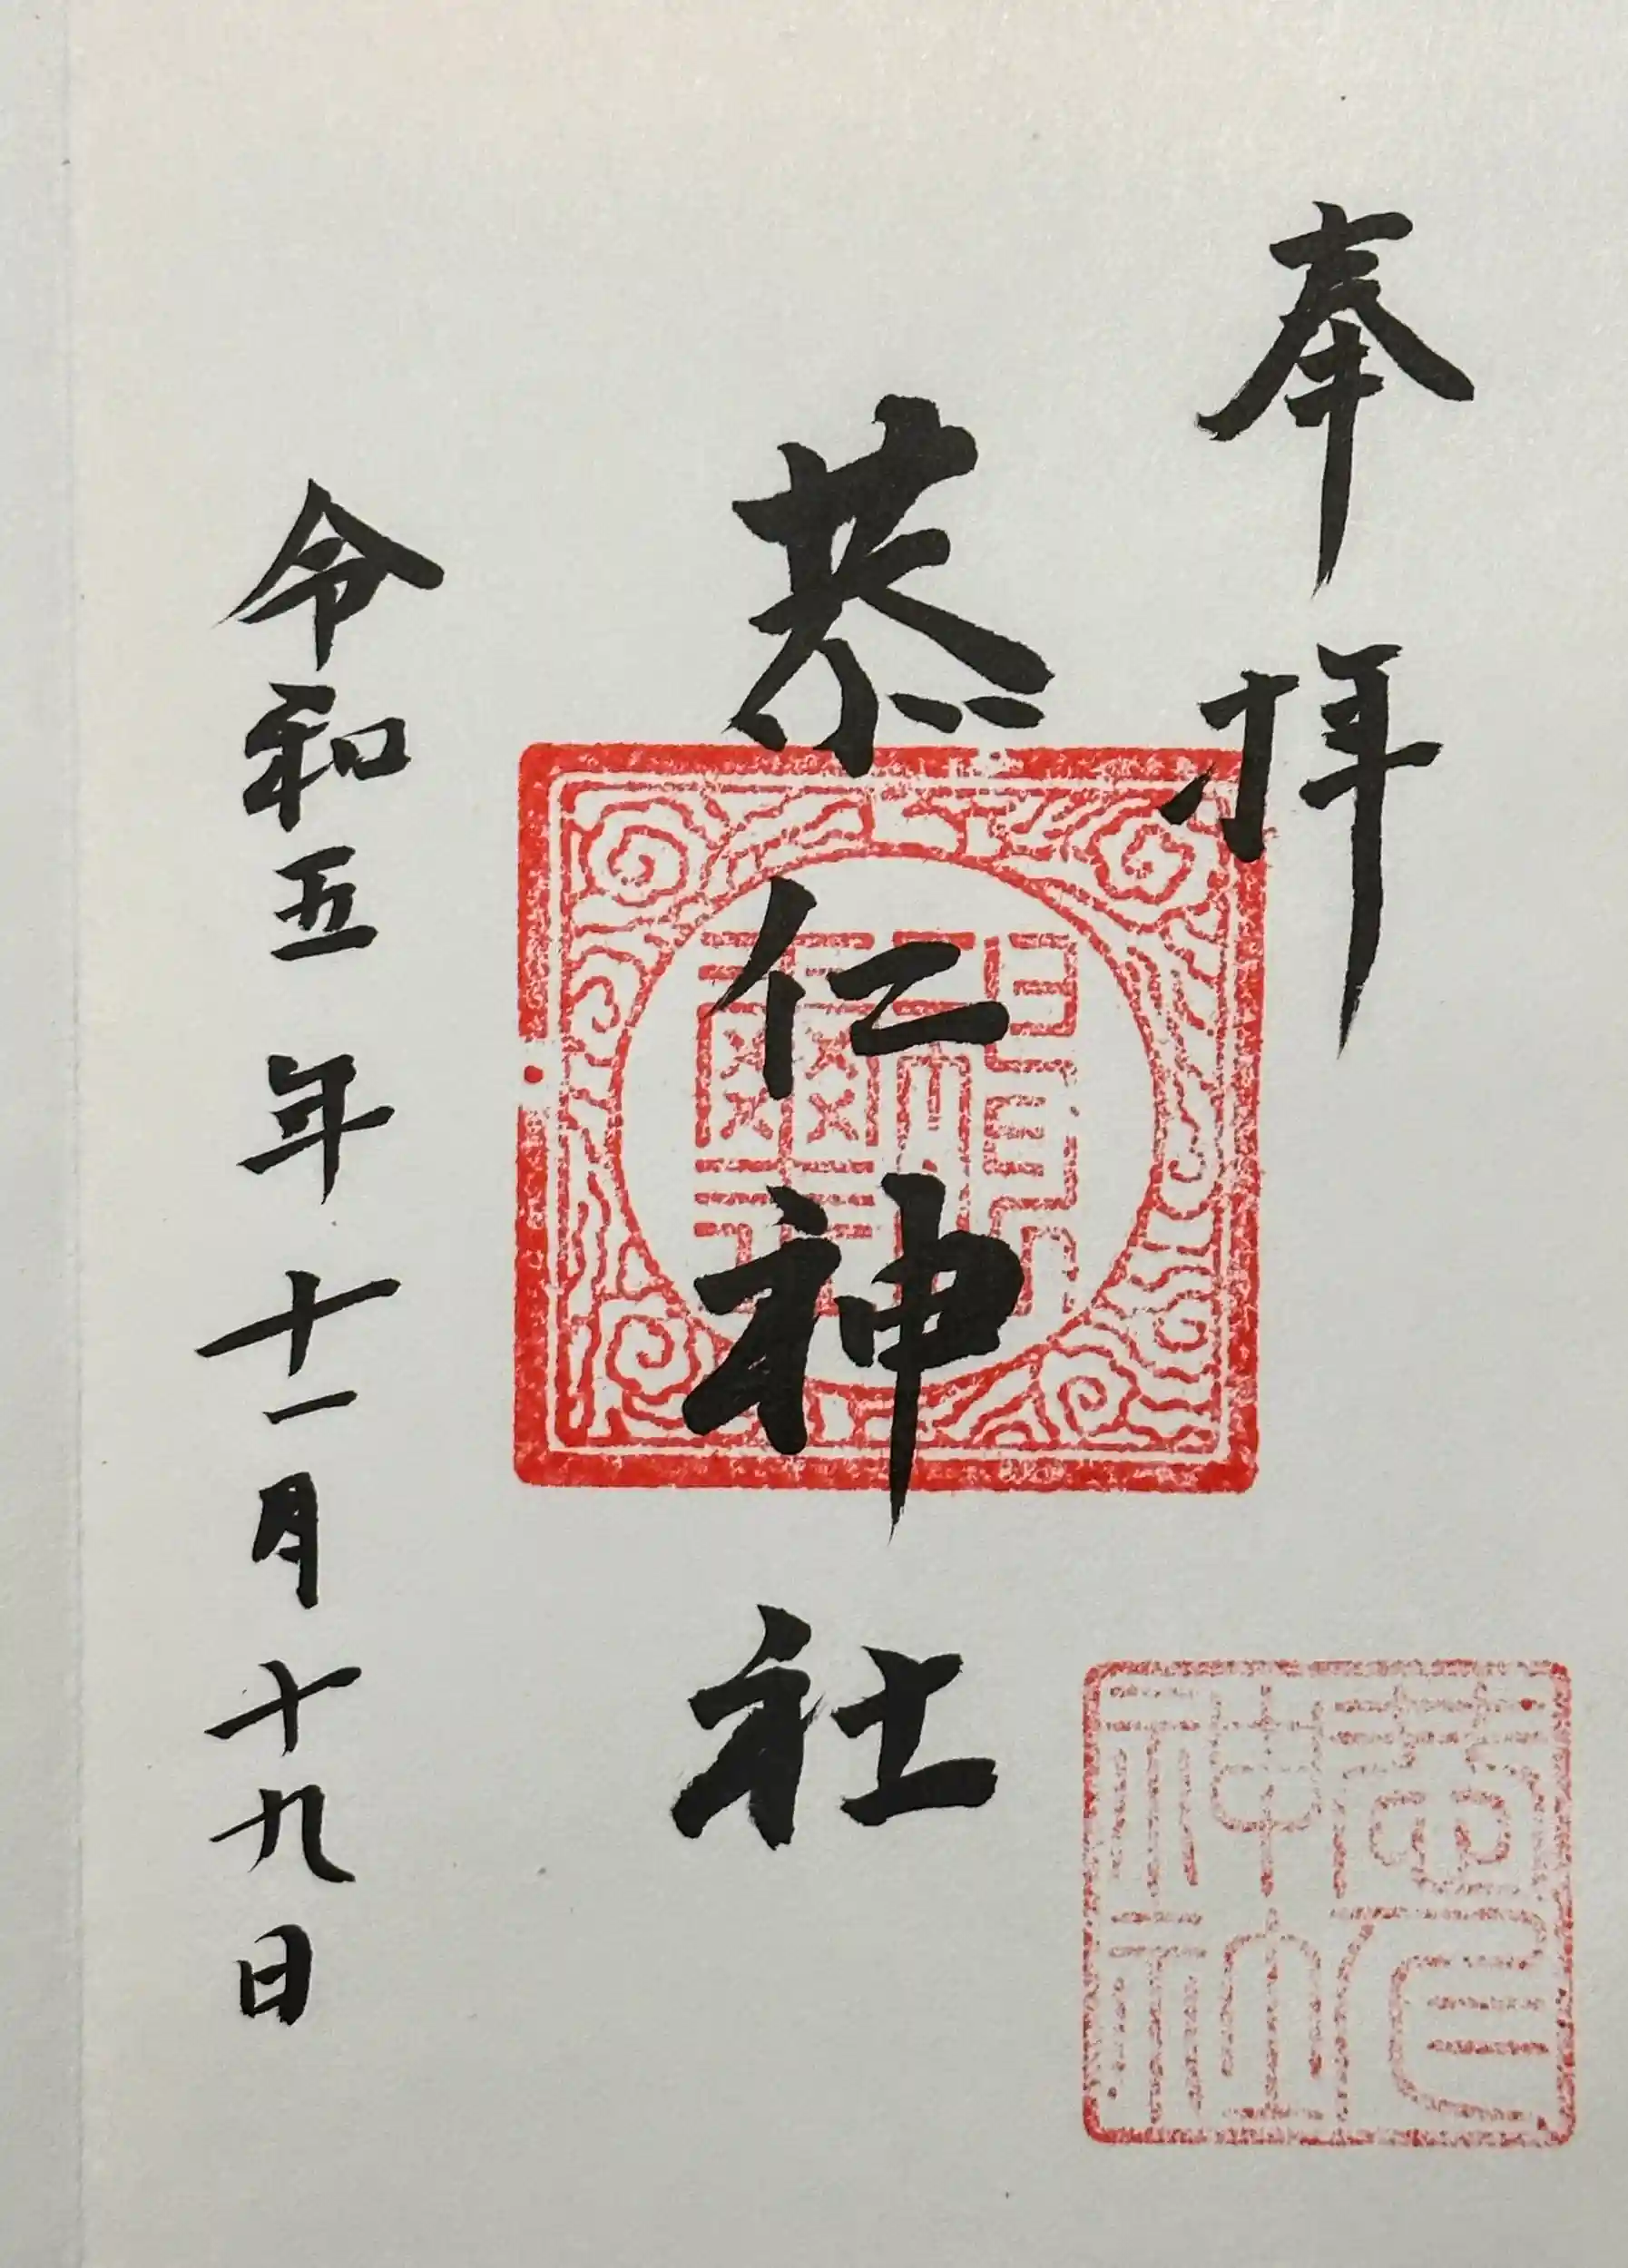 奉拝
恭仁神社
令和五年十一月十九日